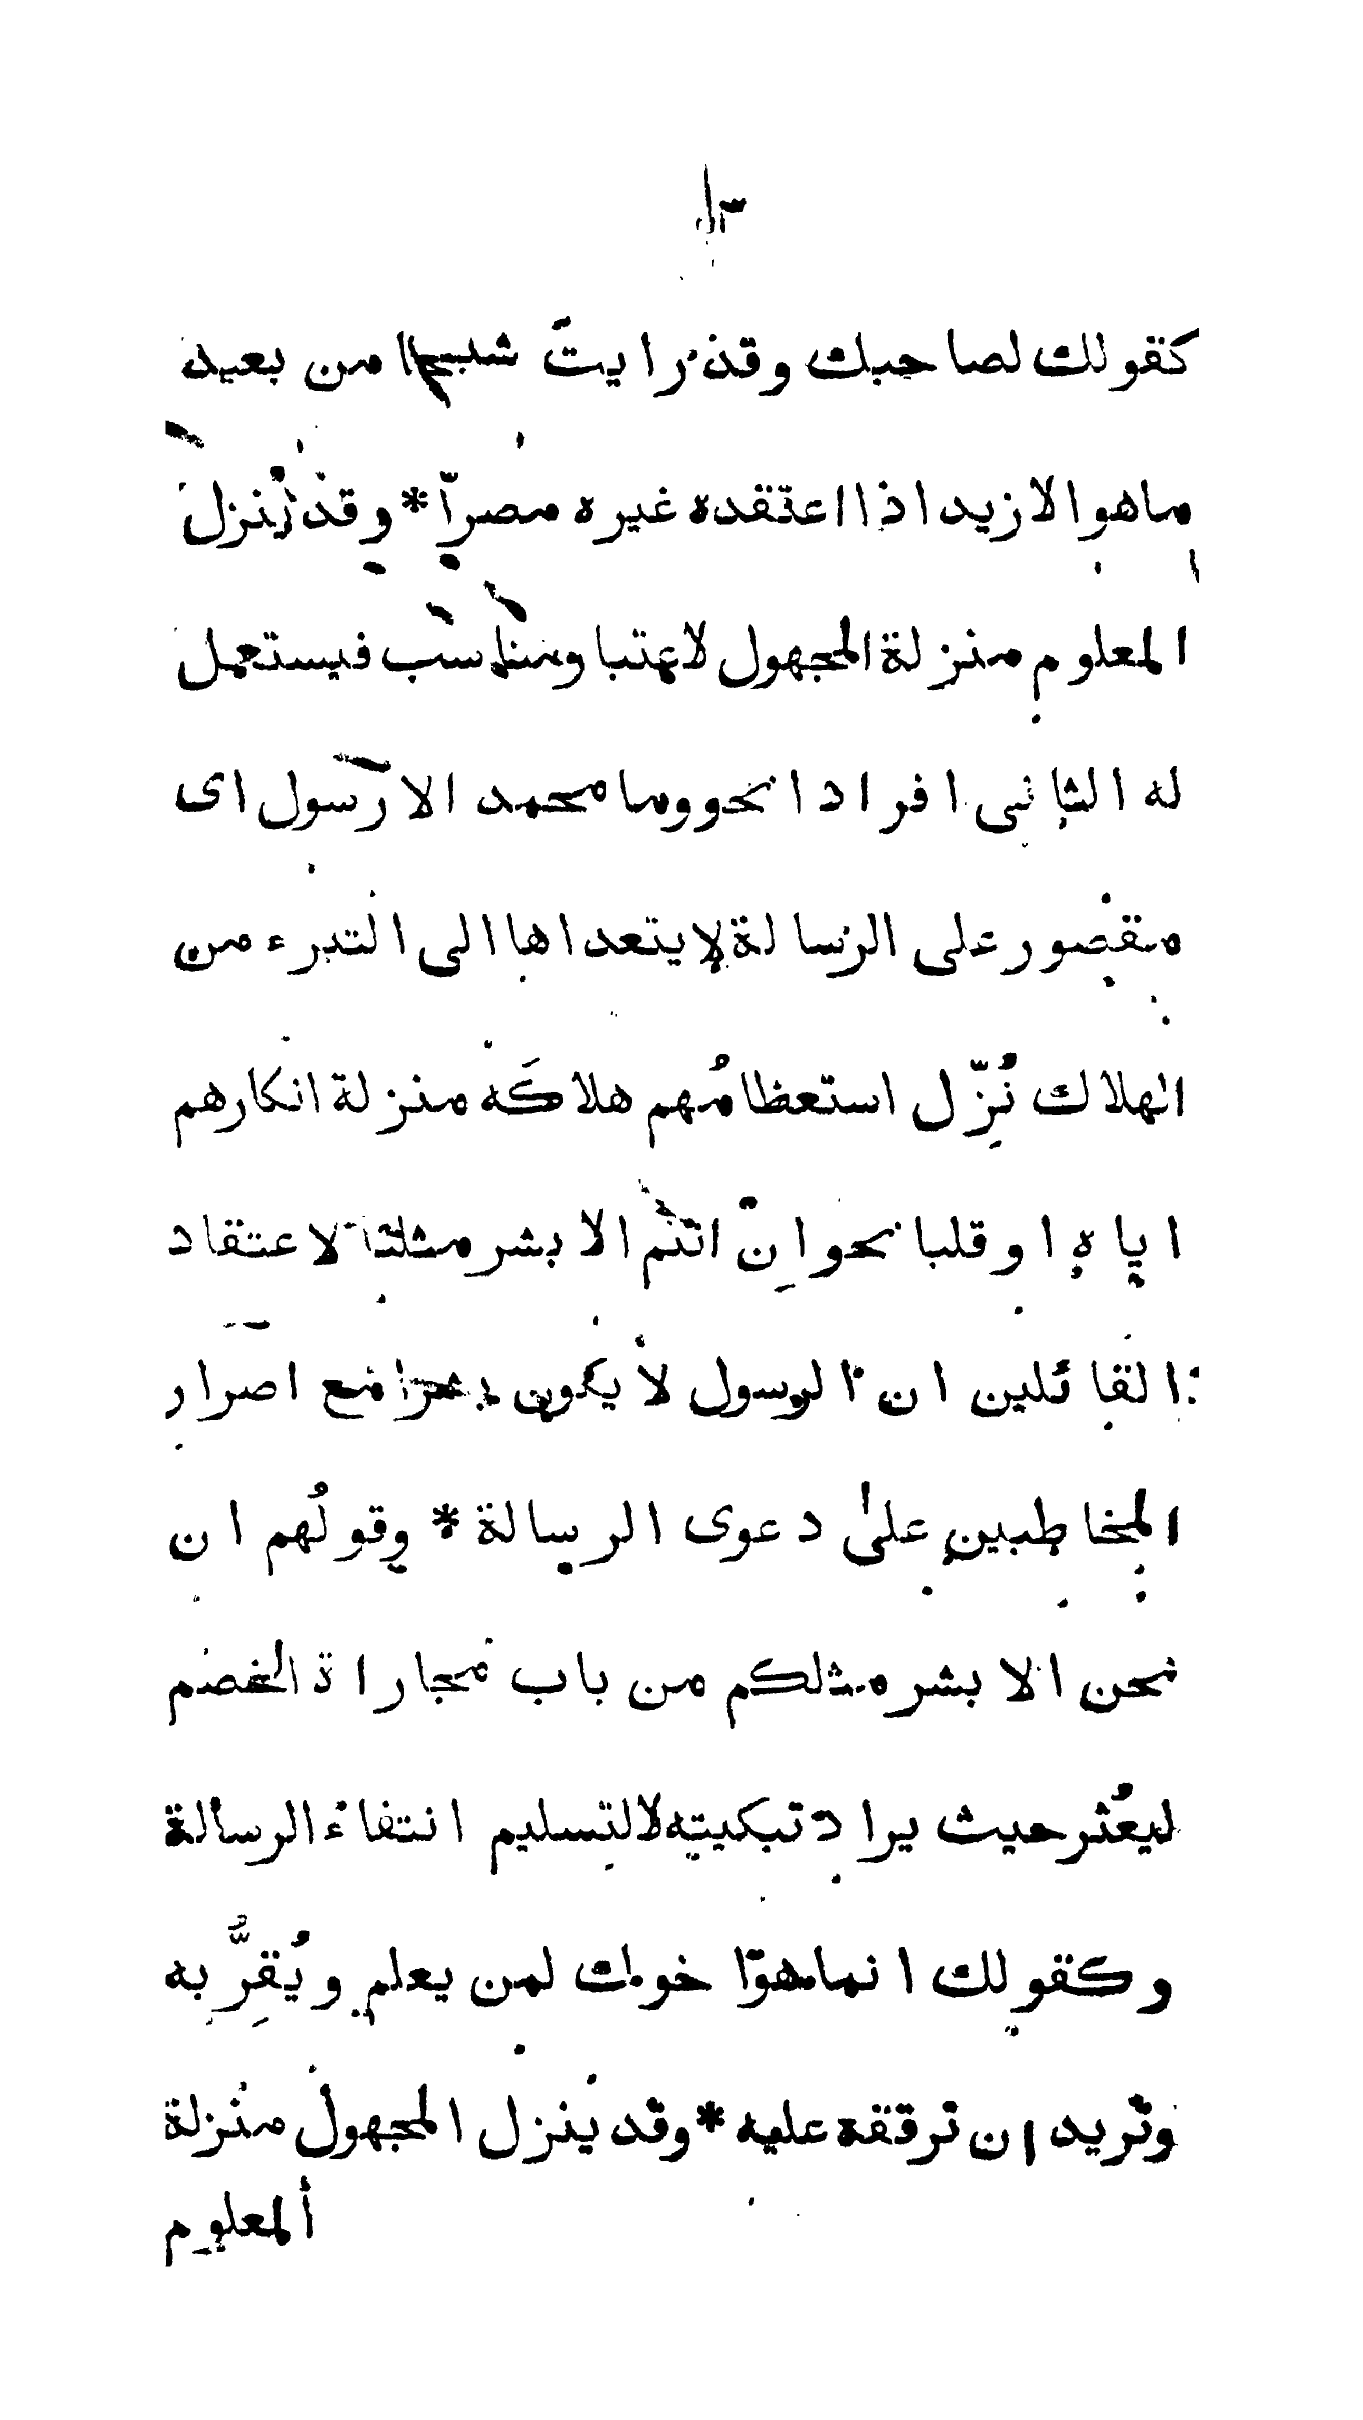 كقولك لصاحبك وقد رايت شبحا من بعيد
ما هو الا زيد اذا اعتقده غيره مصرا * وقد ينزل
المعلوم منزلة المجهول لاعتبار مناسب فيستعمل
له الثانى افرادا نحو وما محمد الا رسول اى
مقصور على الرسالة لا يتعداها الى التبرء من
الهلاك نُزِّل استعظامُهم هلاكَه منزلة انكارهم
اياه او قلبا نحو اِنّ انتم الا بشر مثلنا لاعتقاد
القائلين ان الرسول لا يكون بشرا مع اصرار
المخاطبين على دعوى الرسالة * وقولُهم ان
نحن الا بشر مثلكم من باب مجاراة الخصم
ليعثر حيث يراد تبكيته لا لتسليم انتفاء الرسالة
وكقولك انما هو اخوك لمن يعلم ويُقِرُّ به
وتريد ان ترققه عليه * وقد ينزل المجهول منزلة
المعلوم